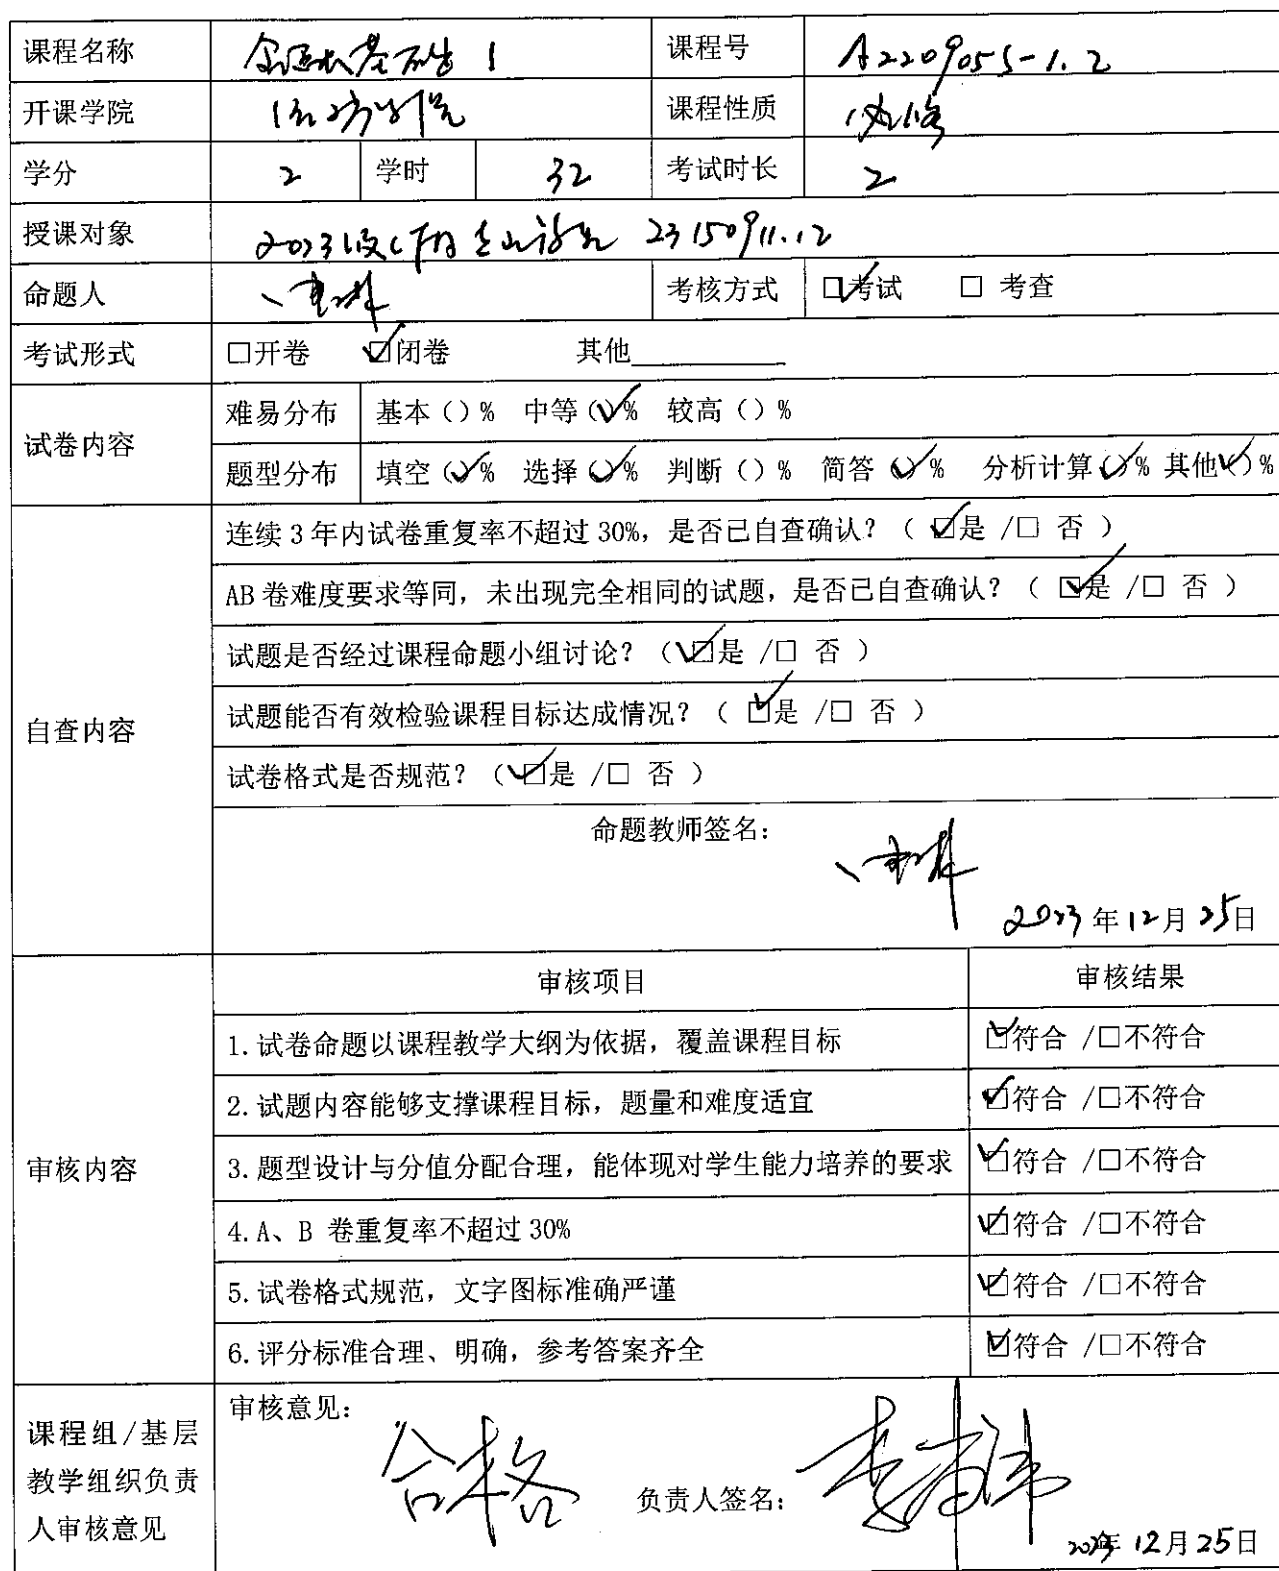 课程名称 基础 1 课程号 A2209055-1.2
开课学院 学院 课程性质 必修
学分 2 学时 32 考试时长 2
授课对象 2023级 23150911.12
命题人 考核方式 ☑考试 □ 考查
考试形式 □开卷 ☑闭卷 其他________
试卷内容 难易分布 基本()% 中等(✓)% 较高()%
题型分布 填空(✓)% 选择(✓)% 判断()% 简答(✓)% 分析计算(✓)% 其他(✓)%
自查内容
连续3年内试卷重复率不超过30%，是否已自查确认？（ ☑是 /□ 否 ）
AB卷难度要求等同，未出现完全相同的试题，是否已自查确认？（ ☑是 /□ 否 ）
试题是否经过课程命题小组讨论？（☑是 /□ 否 ）
试题能否有效检验课程目标达成情况？（ ☑是 /□ 否 ）
试卷格式是否规范？（☑是 /□ 否 ）
命题教师签名：
2023年12月25日
审核内容
审核项目 审核结果
1.试卷命题以课程教学大纲为依据，覆盖课程目标 ☑符合 /□不符合
2.试题内容能够支撑课程目标，题量和难度适宜 ☑符合 /□不符合
3.题型设计与分值分配合理，能体现对学生能力培养的要求 ☑符合 /□不符合
4.A、B 卷重复率不超过30% ☑符合 /□不符合
5.试卷格式规范，文字图标准确严谨 ☑符合 /□不符合
6.评分标准合理、明确，参考答案齐全 ☑符合 /□不符合
课程组/基层
教学组织负责
人审核意见
审核意见：
合格 负责人签名：
2023年12月25日